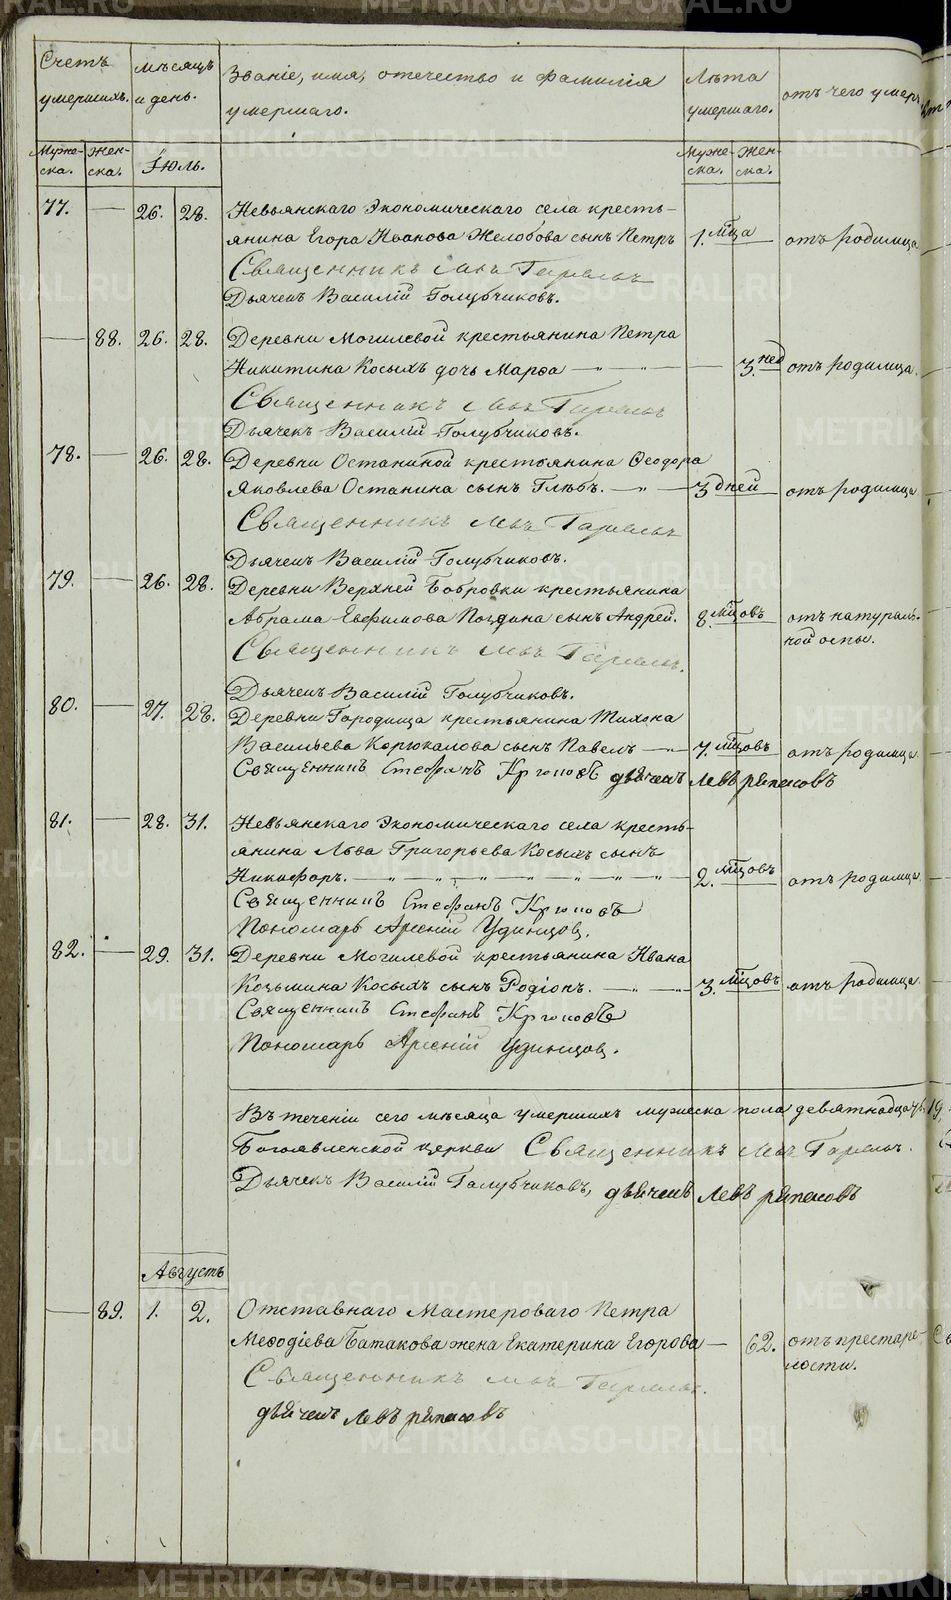 Счетъ умершихъ.
мѣсяцъ и день.
Званіе, имя, отечество и фамилія умершаго.
Лѣта умершаго.
отъ чего умеръ
Муже-ска. Жен-ска. Іюль. Муже-ска. Жен-ска.
77. — 26. 28. Невьянскаго Экономическаго села кресть-
янина Егора Иванова Желобова сынъ Петръ 1. мѣца отъ родимца
Священникъ
Дьячекъ Василій Голубчиковъ.
— 88. 26. 28. Деревни Могилевой крестьянина Петра
Никитина Косыхъ дочь Марѳа — „ — „ — 3. нед отъ родимца.
Священникъ
Дьячекъ Василій Голубчиковъ.
78. — 26. 28. Деревни Останиной крестьянина Ѳеодора
Яковлева Останина сынъ Глѣбъ. — „ — 3 дней отъ родимца
Священникъ
Дьячекъ Василій Голубчиковъ.
79. — 26. 28. Деревни Верхней Бобровки крестьянина
Абрама Евфимова Поздина сынъ Андрей. 8. мѣцовъ отъ натураль-
ной оспы.
Священникъ
Дьячекъ Василій Голубчиковъ.
80. — 27. 28. Деревни Городища крестьянина Тихона
Васильева Корюкалова сынъ Павелъ — 7. мѣцовъ отъ родимца.
Священникъ Стефанъ дьячекъ Левъ
81. — 28. 31. Невьянскаго Экономическаго села кресть-
янина Льва Григорьева Косыхъ сынъ
Никифоръ. — „ — „ — „ — „ — „ — „ — „ — 2. мѣцовъ отъ родимца.
Священникъ Стефанъ
Пономарь Арсеній Удинцов.
82. — 29. 31. Деревни Могилевой крестьянина Ивана
Козьмина Косыхъ сынъ Родіонъ. — „ — „ 3. мѣцовъ отъ родимца
Священникъ Стефанъ
Пономарь Арсеній Удинцов.
Въ теченіи сего мѣсяца умершихъ мужеска пола девятнадцать 19.
Богоявленской церкви Священникъ
Дьячекъ Василій Голубчиковъ, дьячекъ Левъ
Августъ
— 89. 1. 2. Отставнаго Мастероваго Петра
Меѳодіева Батакова жена Екатерина Егорова — 62. отъ престаре-
лости.
Священникъ
дьячекъ Левъ
METRIKI.GASO-URAL.RU